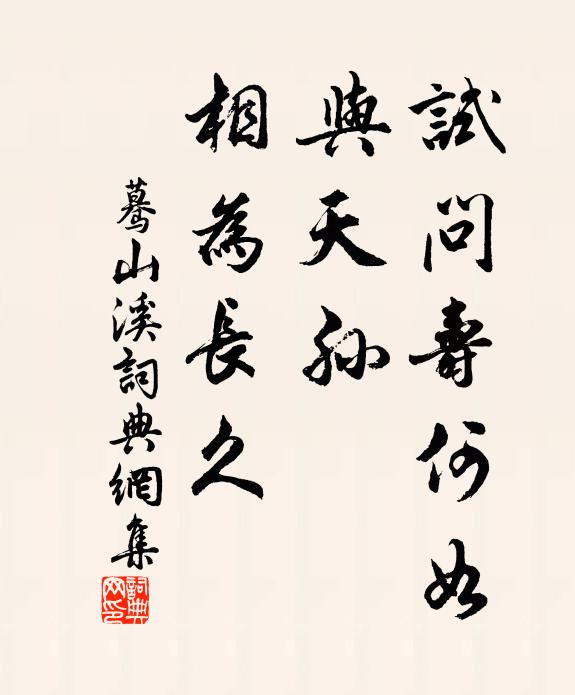 試問壽何如
與天孫
相為長久
蓦山溪詞典網集
詞典
网印